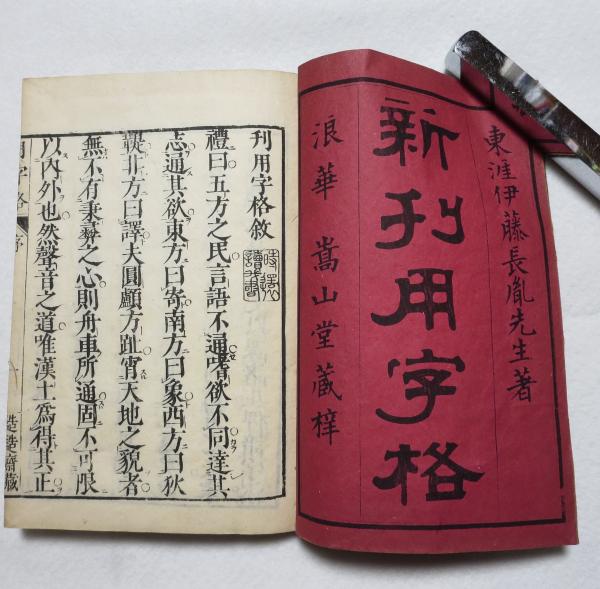 東涯伊藤長胤先生著
新刊用字格
浪華 嵩山堂藏梓
刊用字格敘
時還讀我書
禮曰五方之民言語不通嗜欲不同達其
志通其欲東方曰寄南方曰象西方曰狄
鞮北方曰譯夫圓顱方趾宵天地之貌者
無不有秉彝之心則舟車所通固不可限
以内外也然聲音之道唯漢土爲得其正
用字格 序 慥慥齋藏